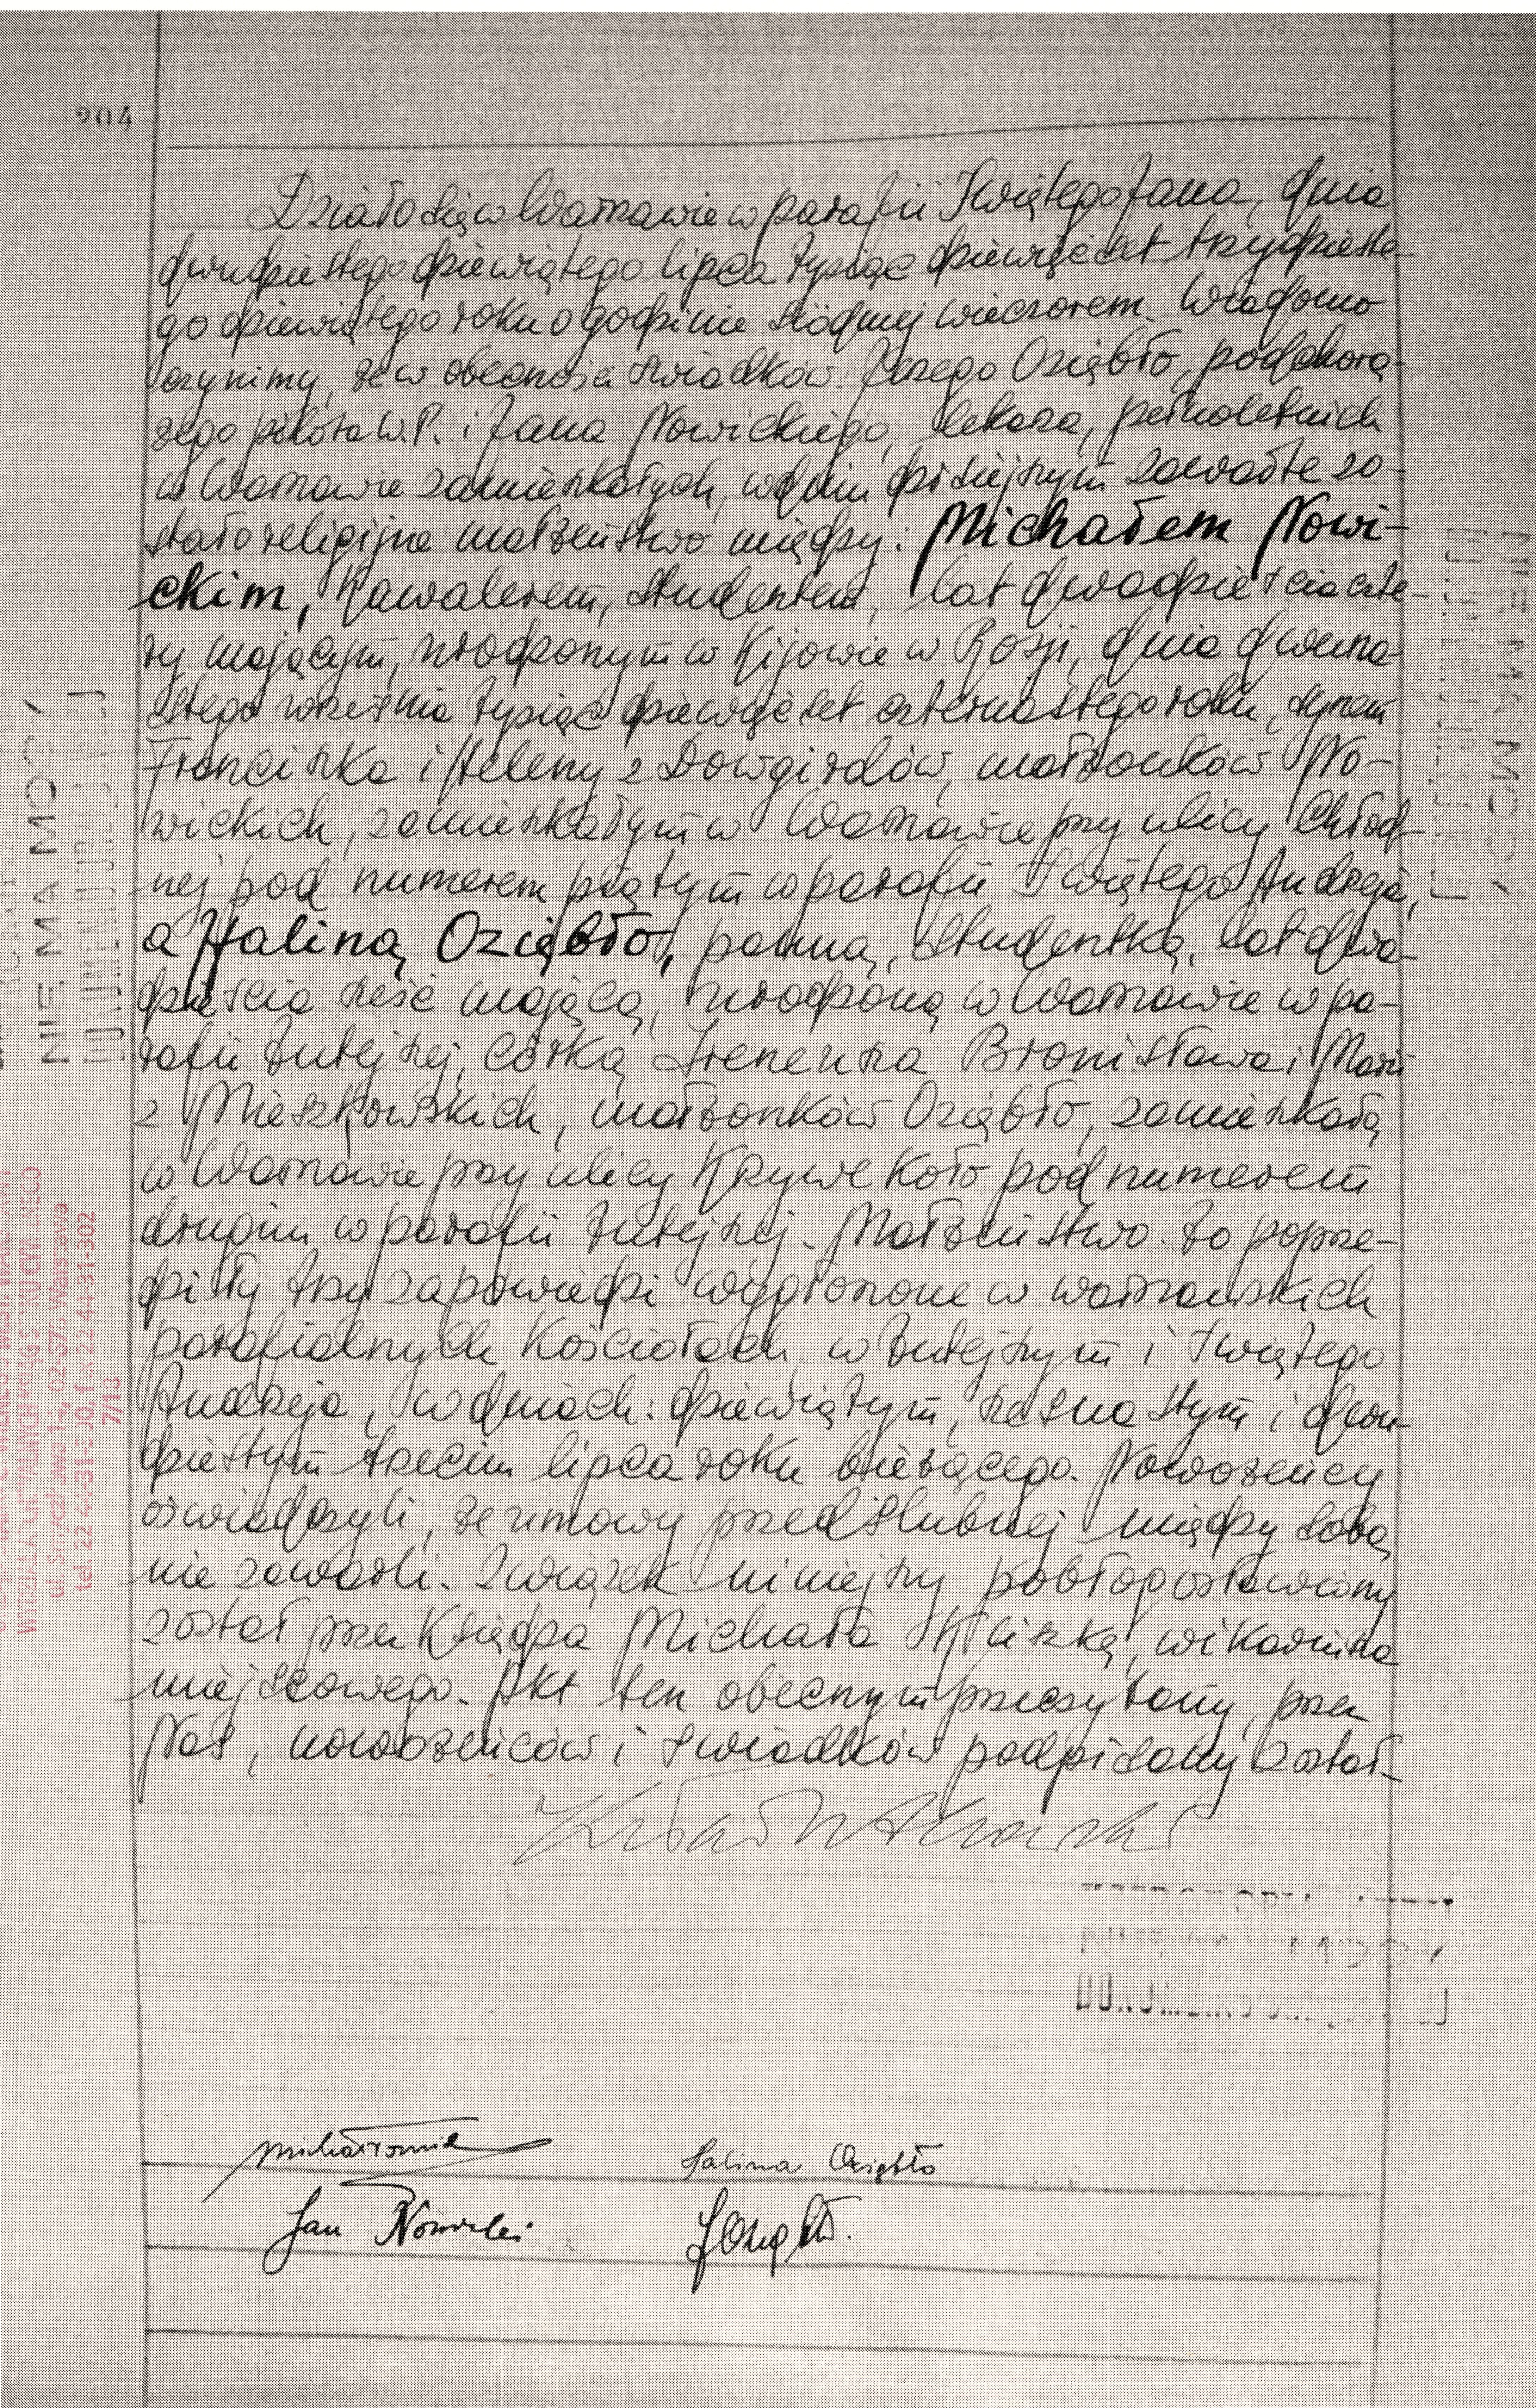 204
Działo się w Warszawie w parafii Świętego Jana, dnia
dwudziestego dziewiątego lipca tysiąc dziewięćset trzydzieste-
go dziewiątego roku o godzinie siódmej wieczorem. Wiadomo
czynimy, że w obecności świadków: Jerzego Oziębło, podchorą-
żego pilota W.P. i Jana Nowickiego, lekarza, pełnoletnich
w Warszawie zamieszkałych, w dniu dzisiejszym zawarte zo-
stało religijne małżeństwo między: Michałem Nowi-
ckim, kawalerem, studentem, lat dwadzieścia czte-
ry mającym, urodzonym w Kijowie w Rosji, dnia dwuna-
stego września tysiąc dziewięćset czternastego roku, synem
Franciszka i Heleny z Dowgirdów, małżonków No-
wickich, zamieszkałym w Warszawie przy ulicy Chłod-
nej pod numerem piątym w parafii Świętego Andrzeja,
a Haliną Oziębło, panną, studentką, lat dwa-
dzieścia sześć mającą, urodzoną w Warszawie w pa-
rafii tutejszej, córką Ireneusza Bronisława i Marii
z Mieszkowskich, małżonków Oziębło, zamieszkałą
w Warszawie przy ulicy Krzywe Koło pod numerem
drugim w parafii tutejszej. Małżeństwo to poprze-
dziły trzy zapowiedzi wygłoszone w warszawskich
parafialnych kościołach, w tutejszym i Świętego
Andrzeja, w dniach: dziewiątym, szesnastym i dwu-
dziestym trzecim lipca roku bieżącego. Nowożeńcy
oświadczyli, że umowy przedślubnej między sobą
nie zawarli. Związek niniejszy pobłogosławiony
został przez Księdza Michała Kliszkę, wikariusza
miejscowego. Akt ten obecnym przeczytany, przez
Nas, nowożeńców i świadków podpisany został.
Halina Oziębło
Jan Nowicki
NIE MA MOCY
DOKUMENTU
ul. Smyczkowa 14, 02-678 Warszawa
7/13